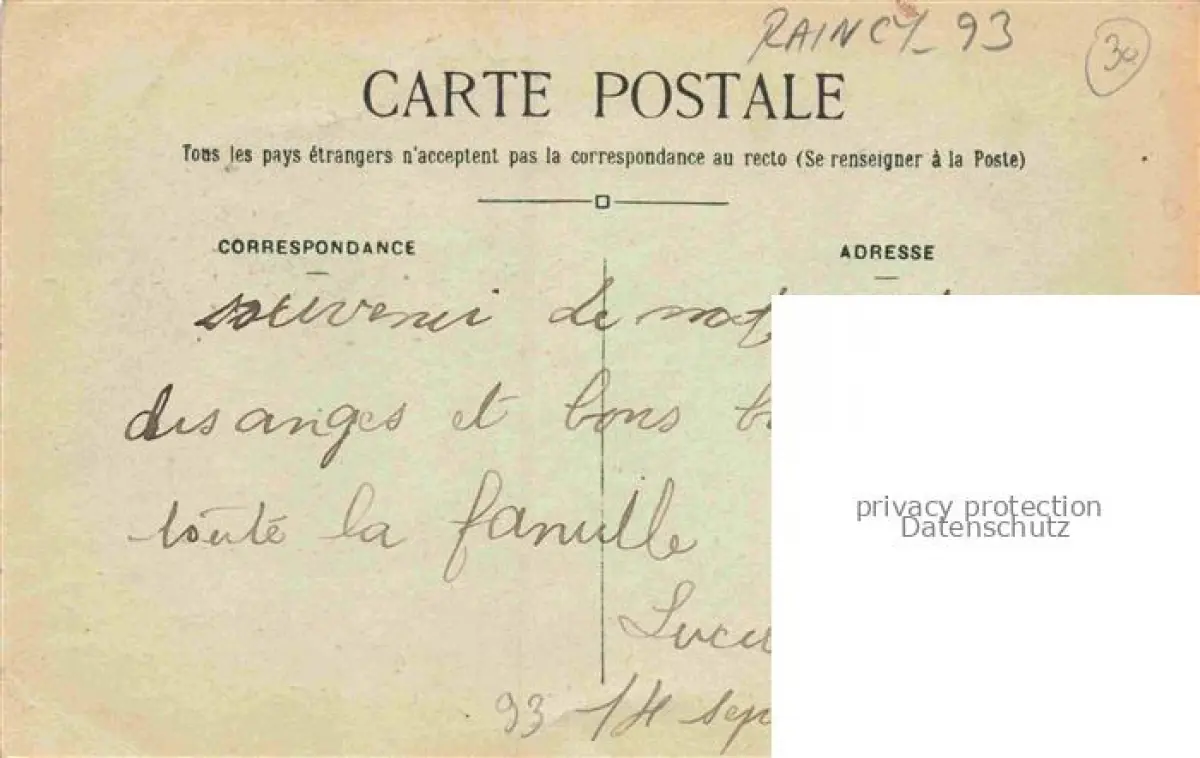 RAINCY_ 93
30
CARTE POSTALE
Tous les pays étrangers n'acceptent pas la correspondance au recto (Se renseigner à la Poste)
CORRESPONDANCE
ADRESSE
souvenir de
des anges et bons
toute la famille
privacy protection
Datenschutz
93 14 sep